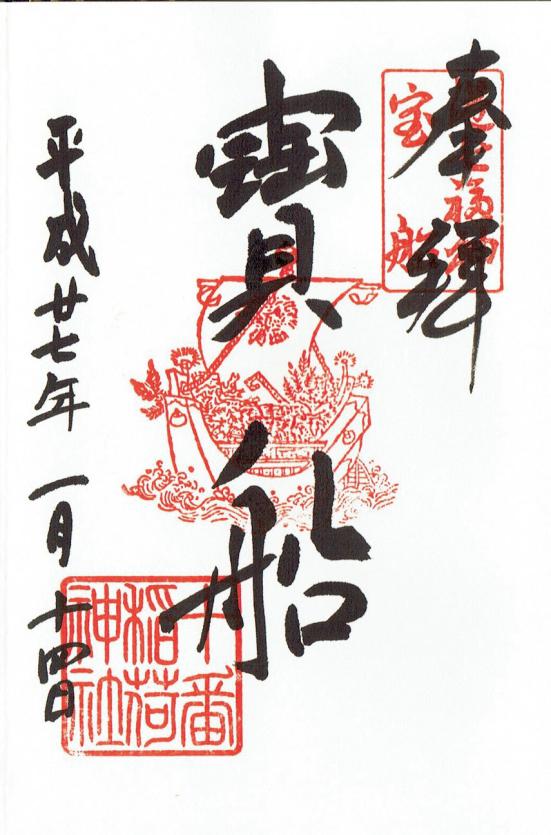 奉拝
港七福神
宝船
寶船
平成廿七年一月十四日
十番
稲荷
神社